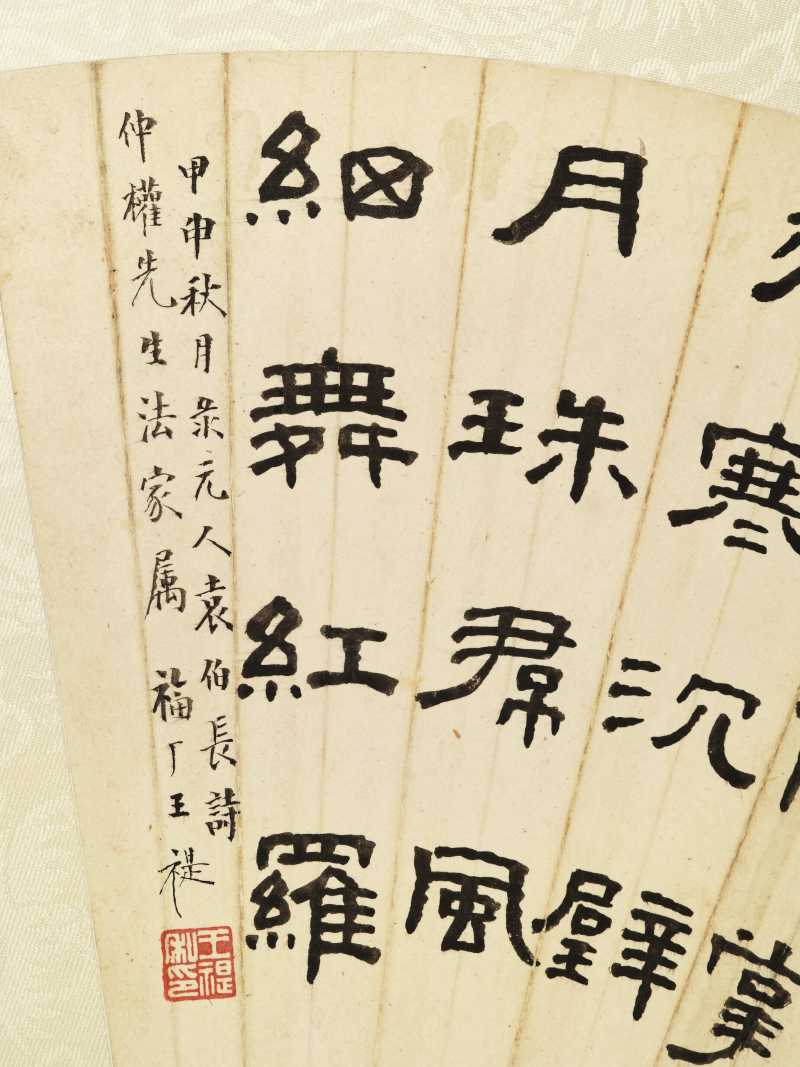 寒沉璧
月珠帬風
細舞紅羅
甲申秋月录元人袁伯長詩
仲權先生法家属 福厂王禔
王禔私印